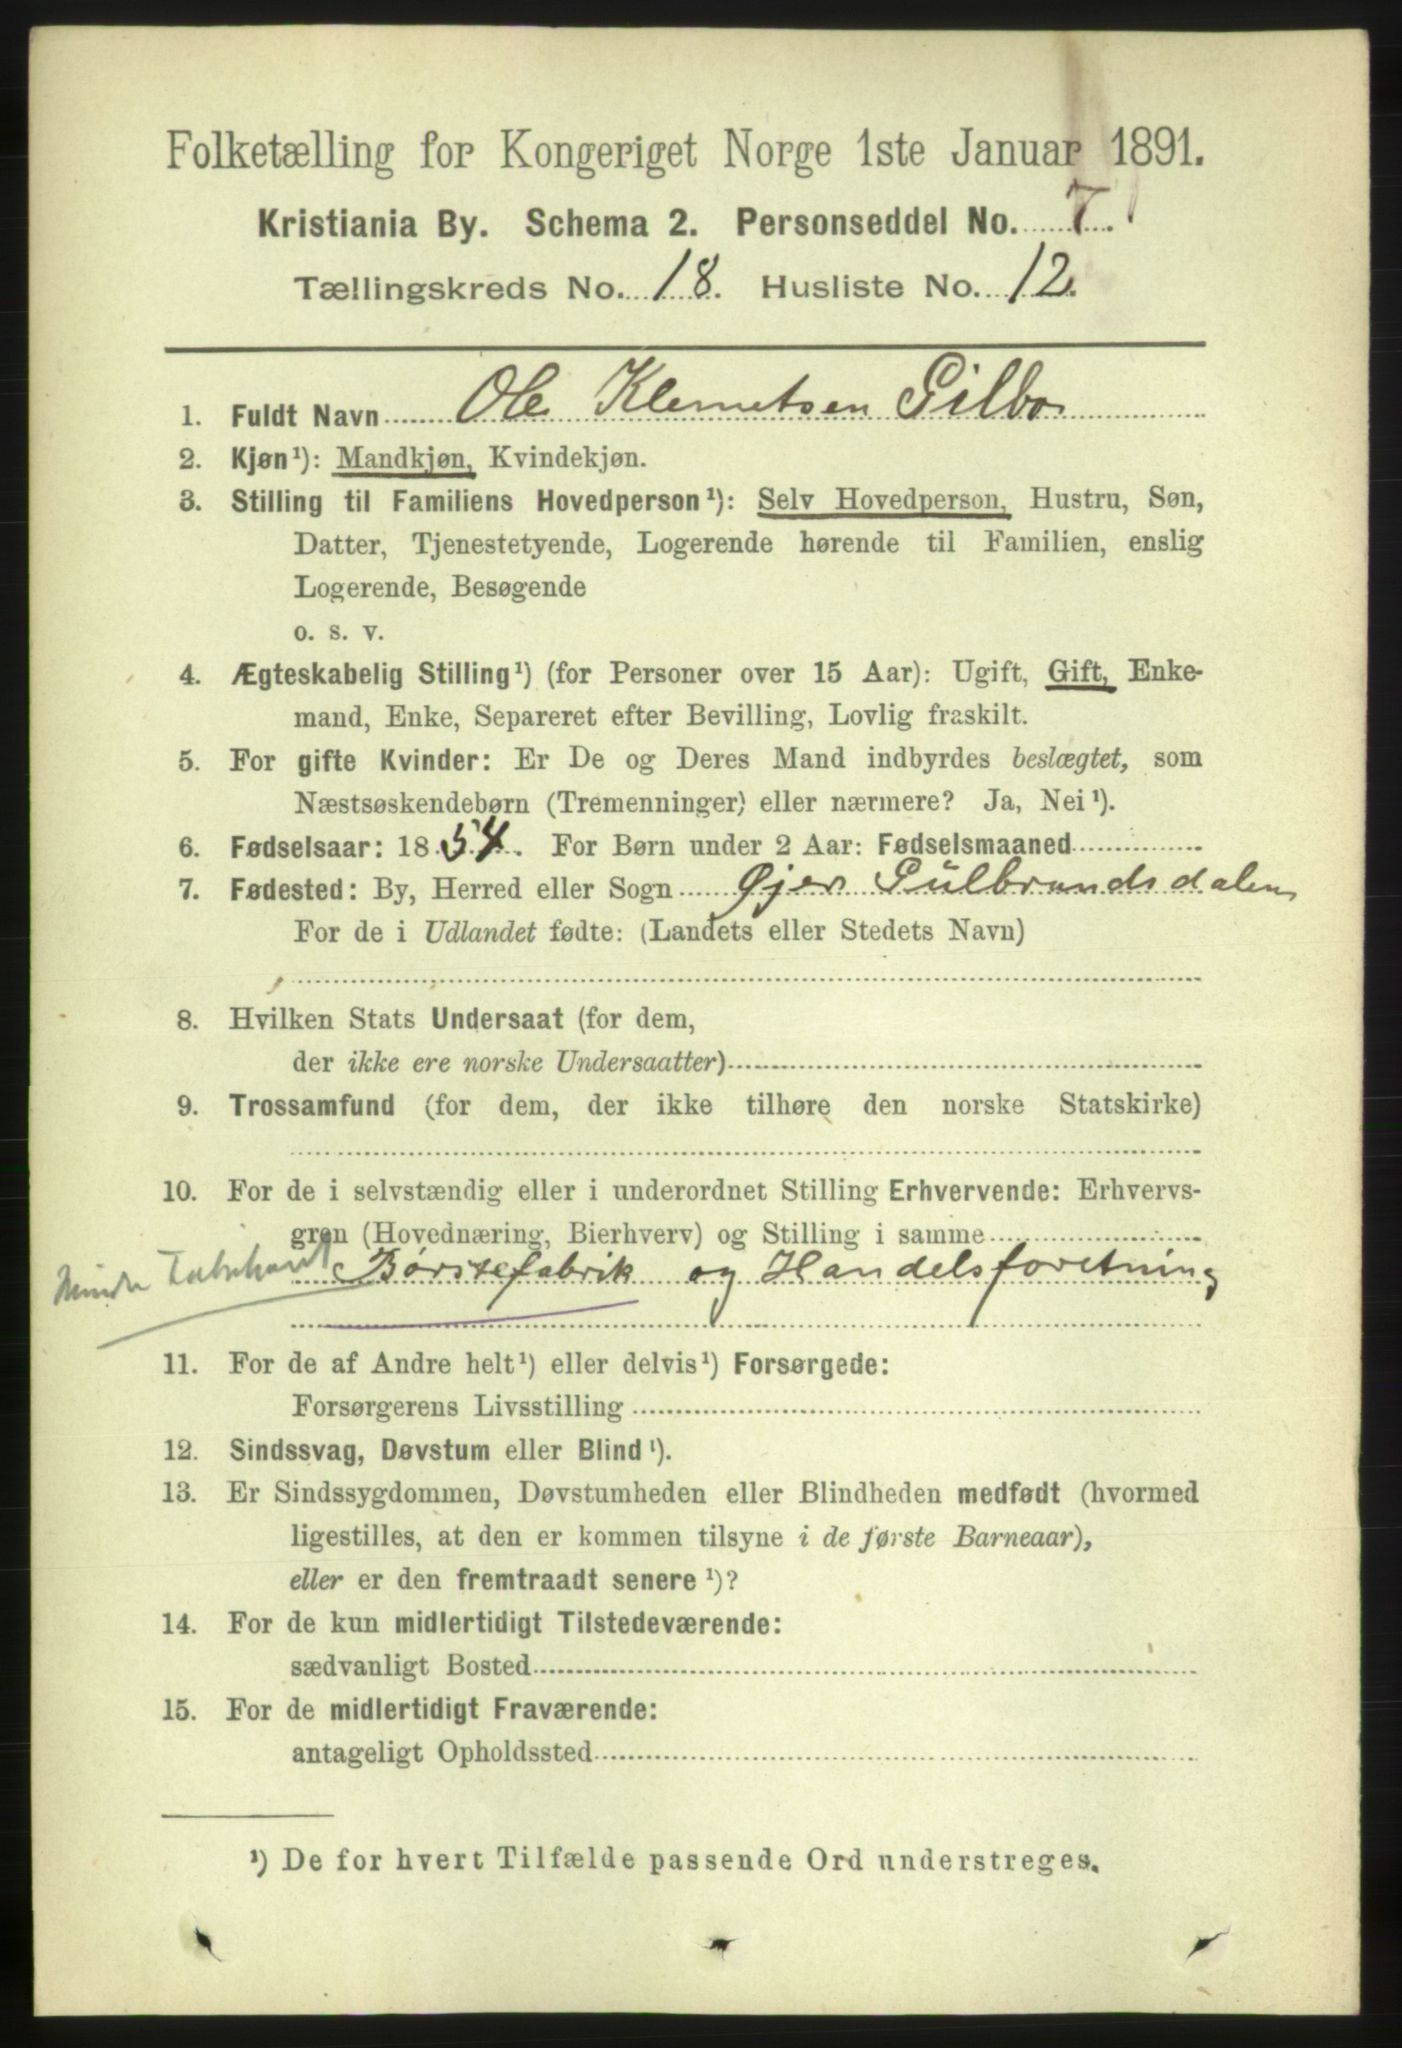 Folketælling for Kongeriget Norge 1ste Januar 1891.
Kristiania By. Schema 2. Personseddel No. 7.
Tællingskreds No. 18. Husliste No. 12.
1. Fuldt Navn Ole Klemetsen Gilbo
2. Kjøn¹): Mandkjøn, Kvindekjøn.
3. Stilling til Familiens Hovedperson¹): Selv Hovedperson, Hustru, Søn,
Datter, Tjenestetyende, Logerende hørende til Familien, enslig
Logerende, Besøgende
o. s. v.
4. Ægteskabelig Stilling¹) (for Personer over 15 Aar): Ugift, Gift, Enke-
mand, Enke, Separeret efter Bevilling, Lovlig fraskilt.
5. For gifte Kvinder: Er De og Deres Mand indbyrdes beslægtet, som
Næstsøskendebørn (Tremenninger) eller nærmere? Ja, Nei¹).
6. Fødselsaar: 1854. For Børn under 2 Aar: Fødselsmaaned
7. Fødested: By, Herred eller Sogn Øjer Gulbrandsdalen
For de i Udlandet fødte: (Landets eller Stedets Navn)
8. Hvilken Stats Undersaat (for dem,
der ikke ere norske Undersaatter)
9. Trossamfund (for dem, der ikke tilhøre den norske Statskirke)
10. For de i selvstændig eller i underordnet Stilling Erhvervende: Erhvervs-
gren (Hovednæring, Bierhverv) og Stilling i samme
Mindre Børstefabrik og Handelsforetning
11. For de af Andre helt¹) eller delvis¹) Forsørgede:
Forsørgerens Livsstilling
12. Sindssvag, Døvstum eller Blind¹).
13. Er Sindssygdommen, Døvstumheden eller Blindheden medfødt (hvormed
ligestilles, at den er kommen tilsyne i de første Barneaar),
eller er den fremtraadt senere¹)?
14. For de kun midlertidigt Tilstedeværende:
sædvanligt Bosted
15. For de midlertidigt Fraværende:
antageligt Opholdssted
¹) De for hvert Tilfælde passende Ord understreges.